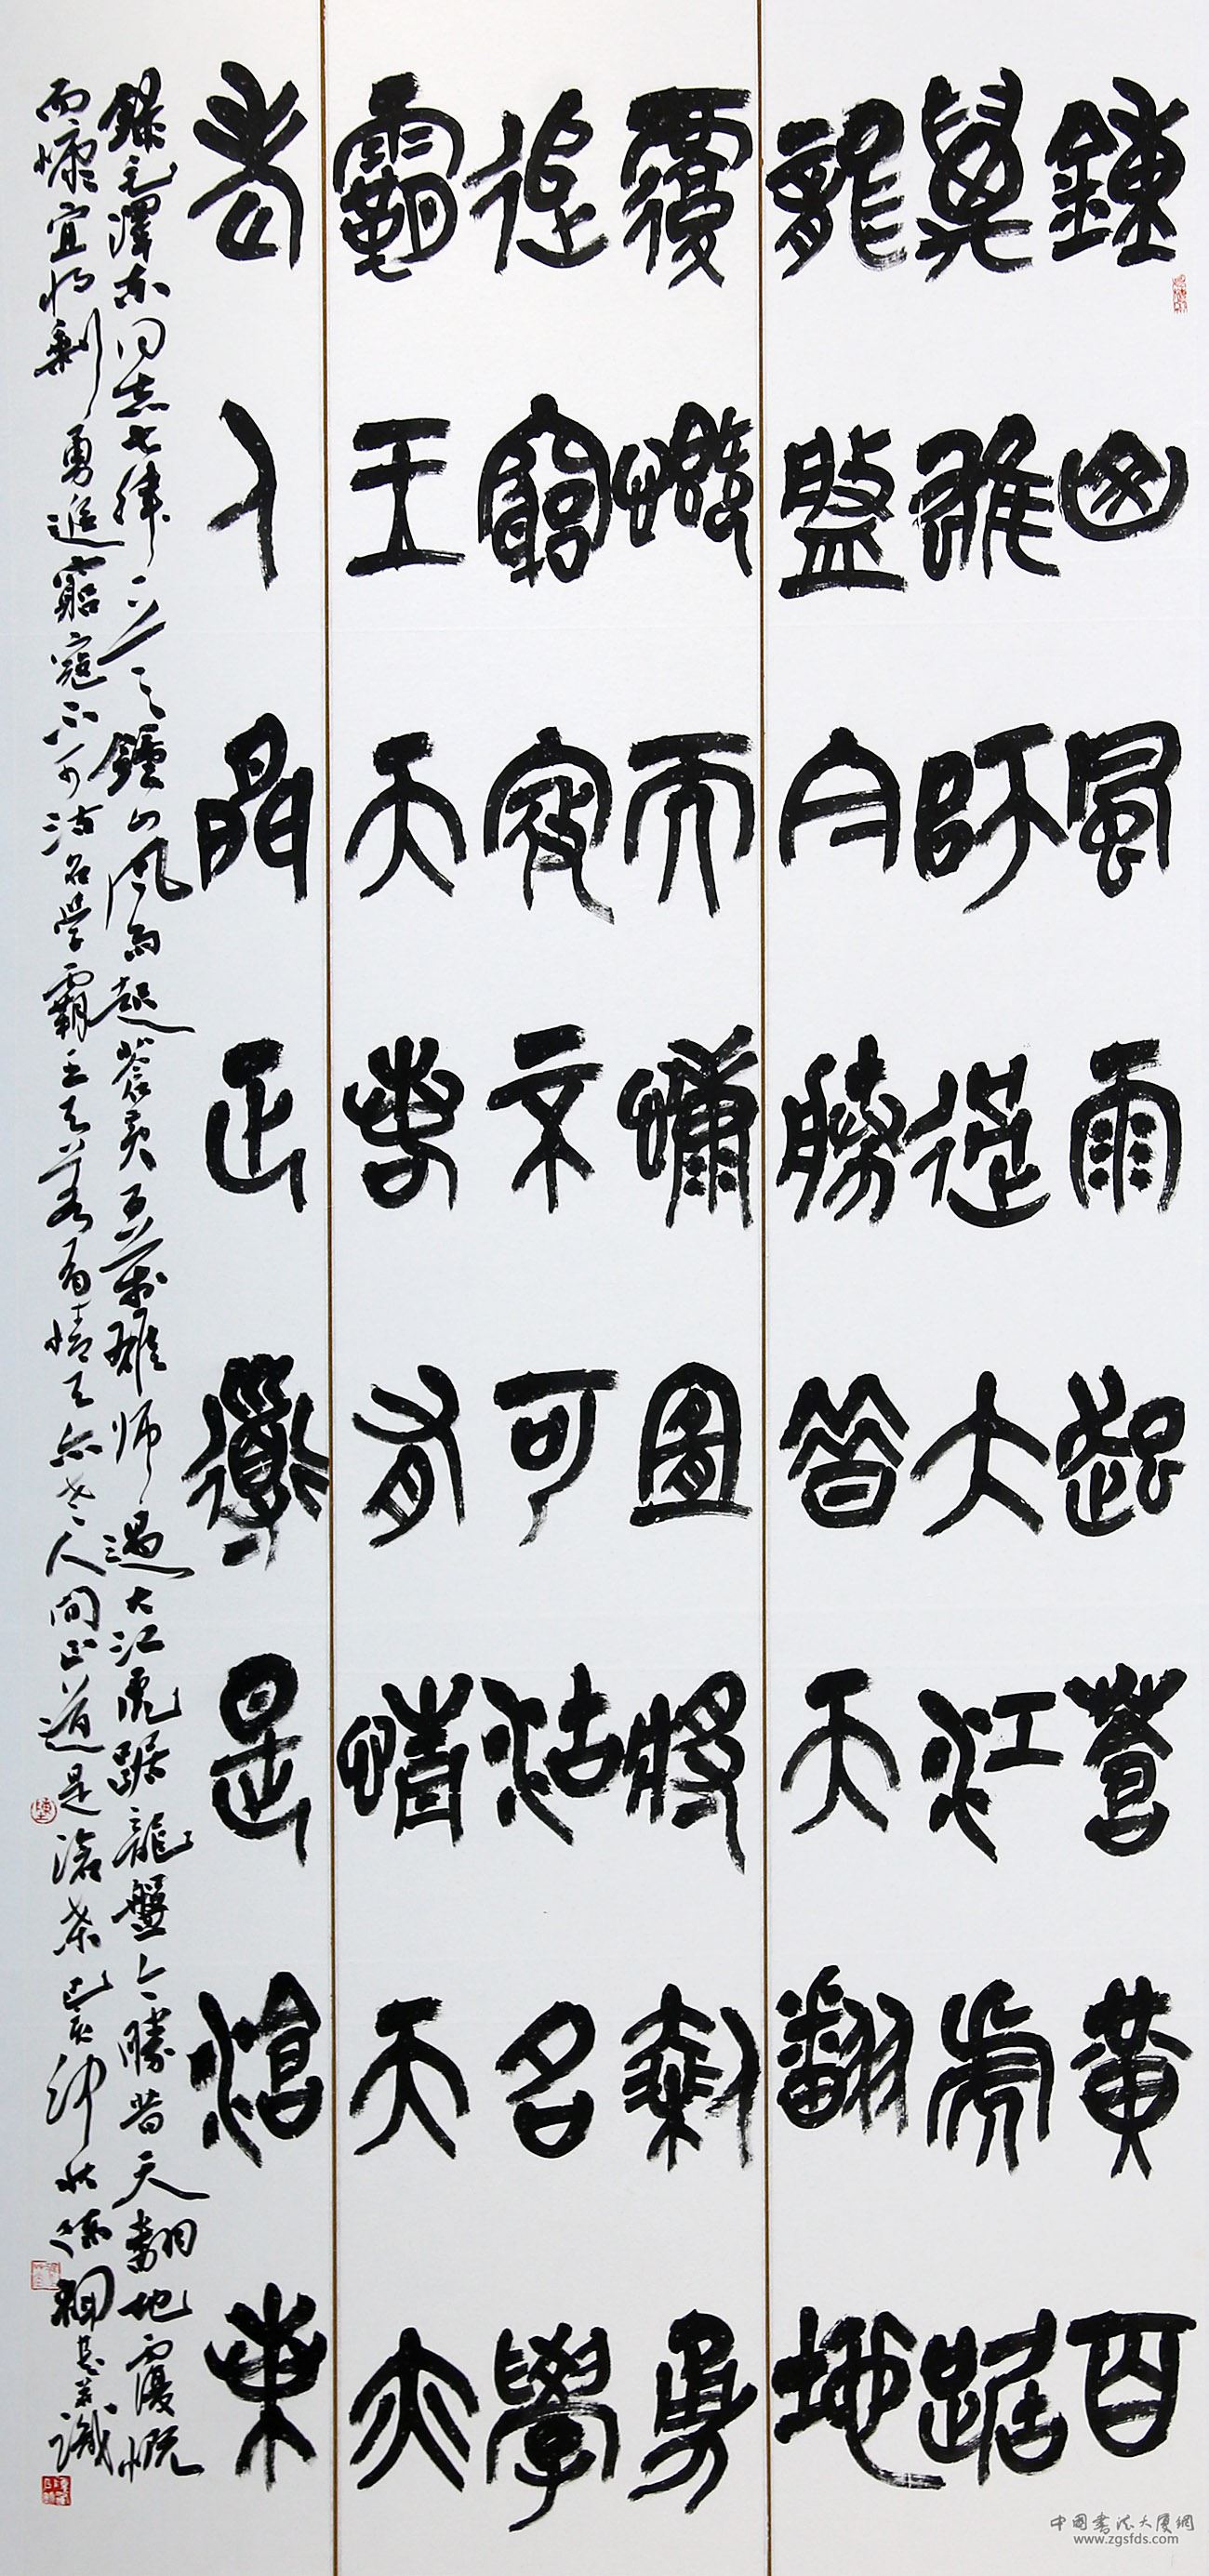 鍾山風雨起蒼黃百
萬雄師過大江虎踞
龍盤今勝昔天翻地
覆慨而慷宜將剩勇
追窮寇不可沽名學
霸王天若有情天亦
老人間正道是滄桑
錄毛澤東同志七律一首鐘山風雨起蒼黃百萬雄师過大江虎踞龍盤今勝昔天翻地覆慨
而慷宜將剩勇追窮寇不可沽名学霸王天若有情天亦老人間正道是滄桑己亥仲秋識
中國書法大廈網
www.zgsfds.com